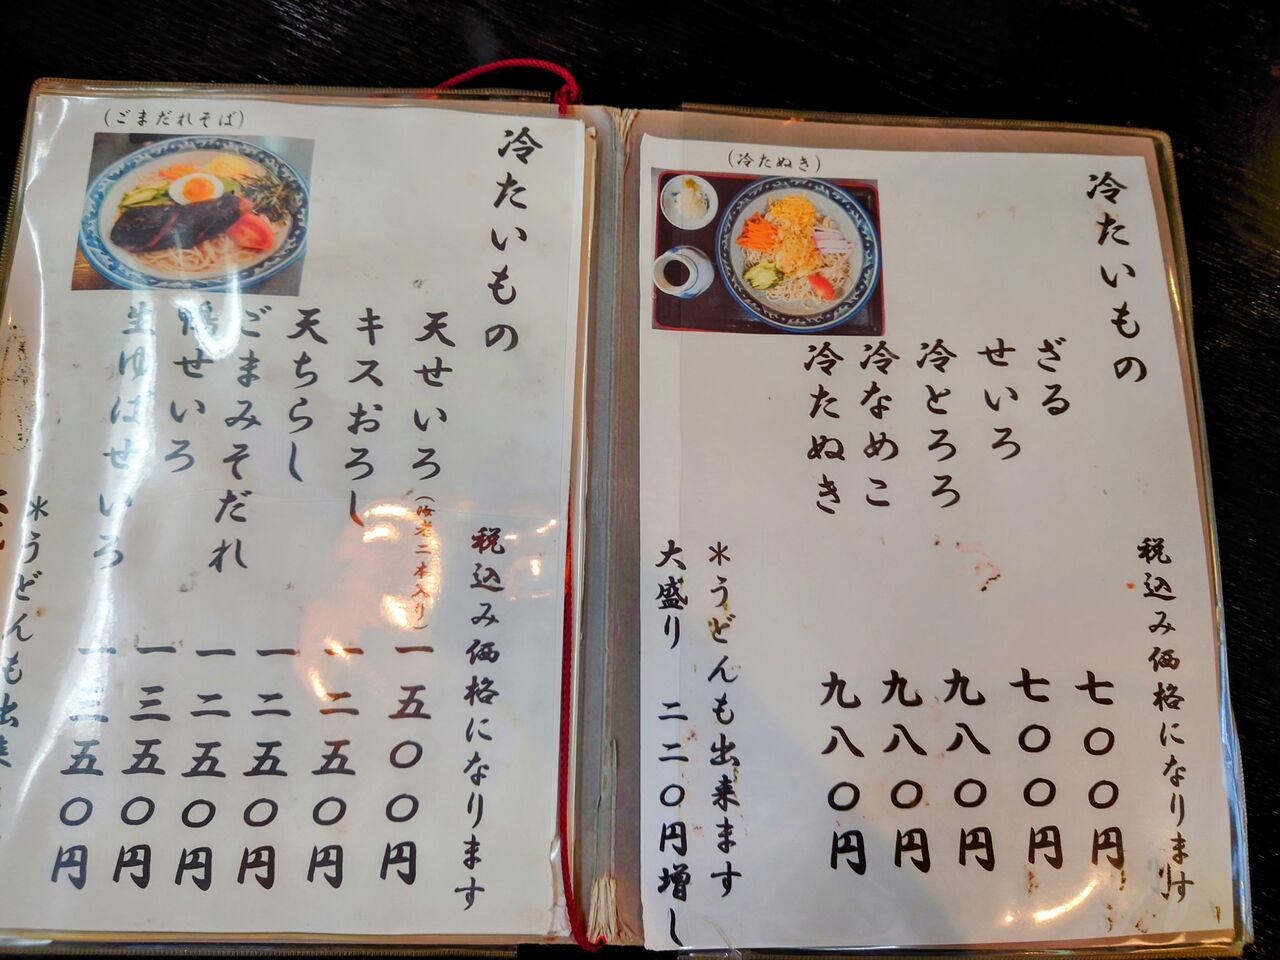 (冷たぬき)
冷たいもの
税込み価格になります
ざる 七〇〇円
せいろ 七〇〇円
冷とろろ 九八〇円
冷なめこ 九八〇円
冷たぬき 九八〇円
＊うどんも出来ます
大盛り 二二〇円増し
(ごまだれそば)
冷たいもの
税込み価格になります
天せいろ(海老二本入り) 一五〇〇円
キスおろし 一二五〇円
天ちらし 一二五〇円
ごまみそだれ 一二五〇円
鴨せいろ 一三五〇円
生ゆばせいろ 一三五〇円
＊うどんも出来